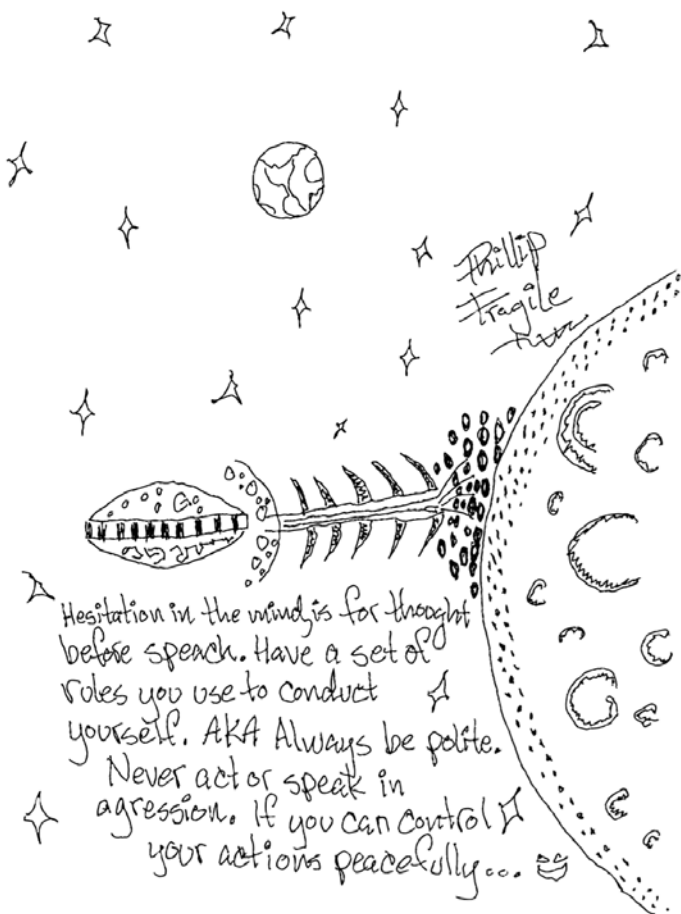 Phillip
Fragile
Hesitation in the mind, is for thought
before speach. Have a set of
rules you use to conduct
yourself. AKA Always be polite.
Never act or speak in
agression. If you can control
your actions peacefully...